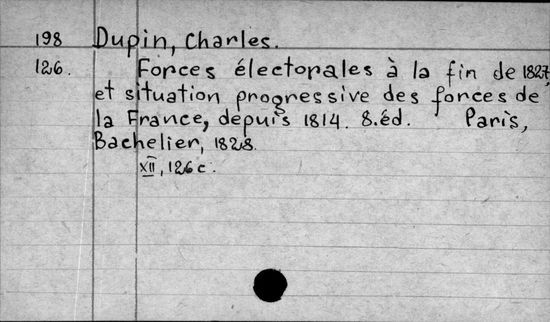 198 Dupin, Charles.
126. Forces électorales à la fin de 1827,
et situation progressive des forces de
la France, depuis 1814. 8.éd. Paris,
Bachelier, 1828.
XII, 126 c.